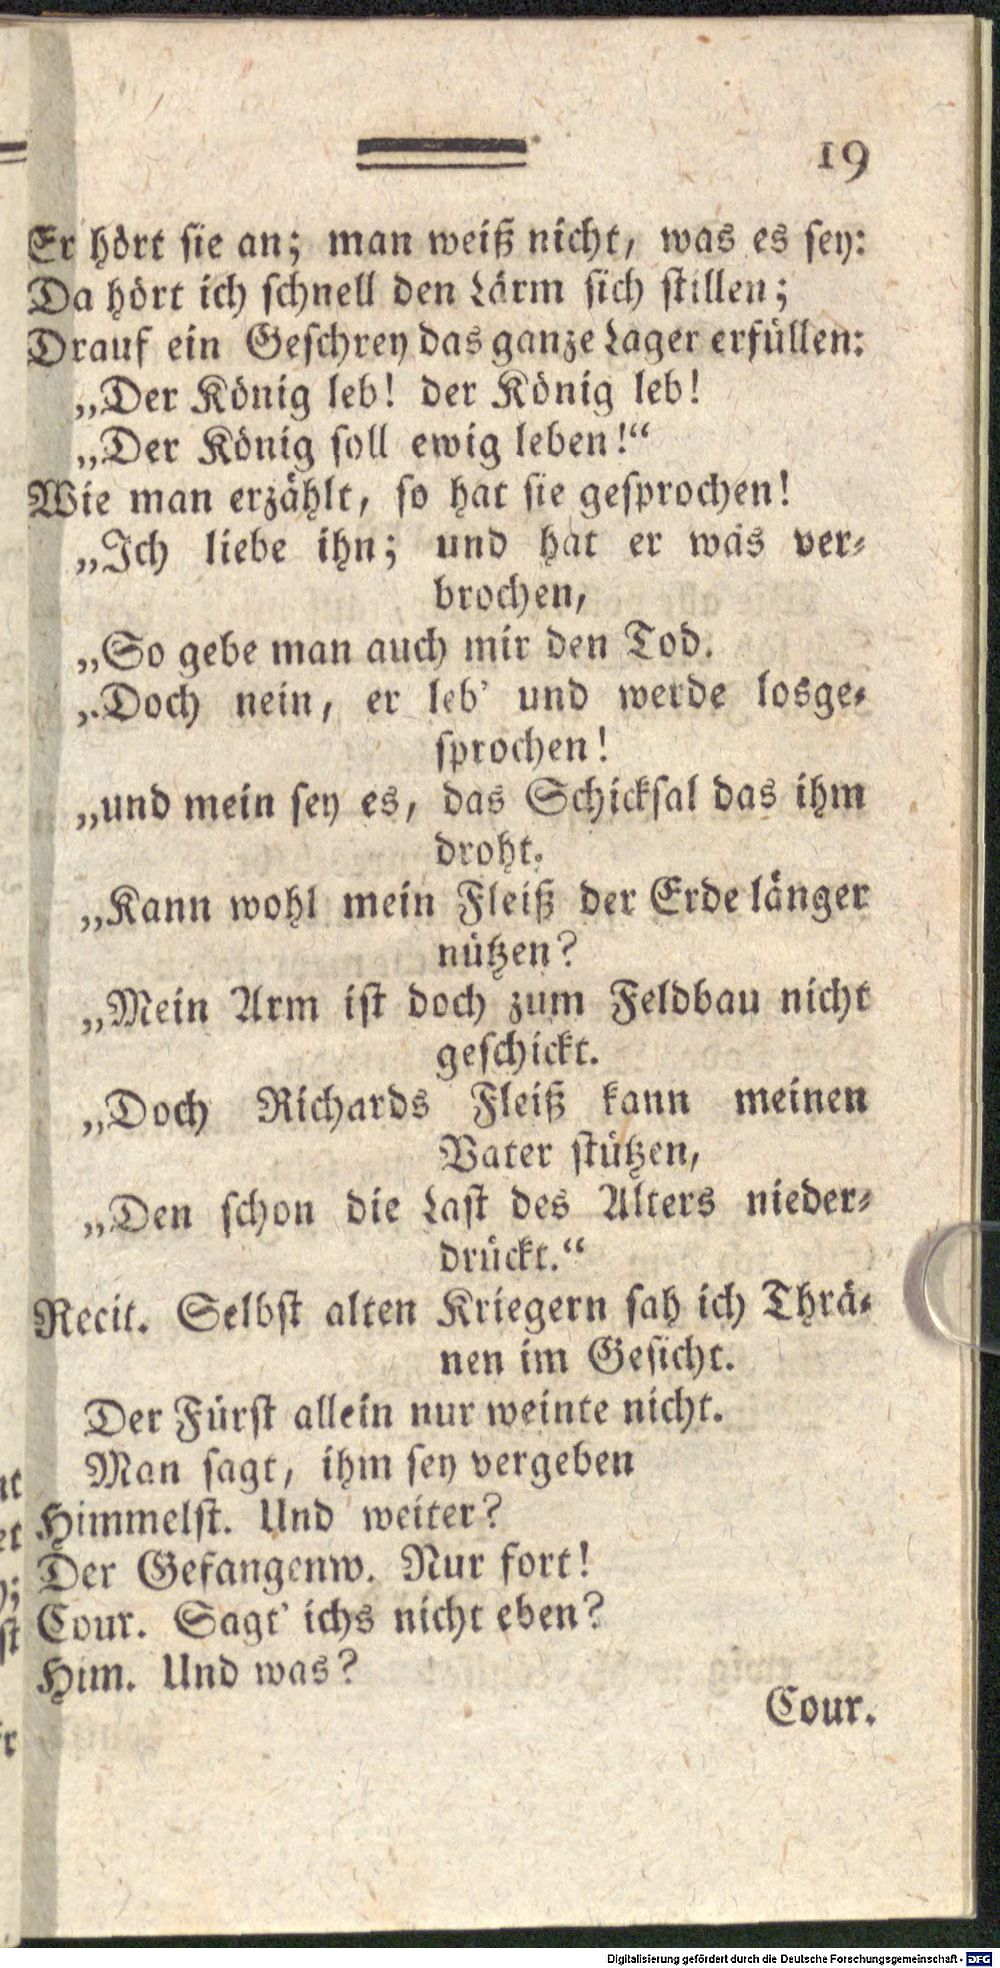 19
Er hört sie an; man weiß nicht, was es sey:
Da hört ich schnell den Lärm sich stillen;
Drauf ein Geschrey das ganze Lager erfüllen:
„Der König leb! der König leb!
„Der König soll ewig leben!“
Wie man erzählt, so hat sie gesprochen!
„Ich liebe ihn; und hat er was ver-
brochen,
„So gebe man auch mir den Tod.
„Doch nein, er leb' und werde losge-
sprochen!
„und mein sey es, das Schicksal das ihm
droht.
„Kann wohl mein Fleiß der Erde länger
nützen?
„Mein Arm ist doch zum Feldbau nicht
geschickt.
„Doch Richards Fleiß kann meinen
Vater stützen,
„Den schon die Last des Alters nieder-
drückt.“
Recit. Selbst alten Kriegern sah ich Thrä-
nen im Gesicht.
Der Fürst allein nur weinte nicht.
Man sagt, ihm sey vergeben
Himmelst. Und weiter?
Der Gefangenw. Nur fort!
Cour. Sagt' ichs nicht eben?
Him. Und was?
Cour.
Digitalisierung gefördert durch die Deutsche Forschungsgemeinschaft - DFG